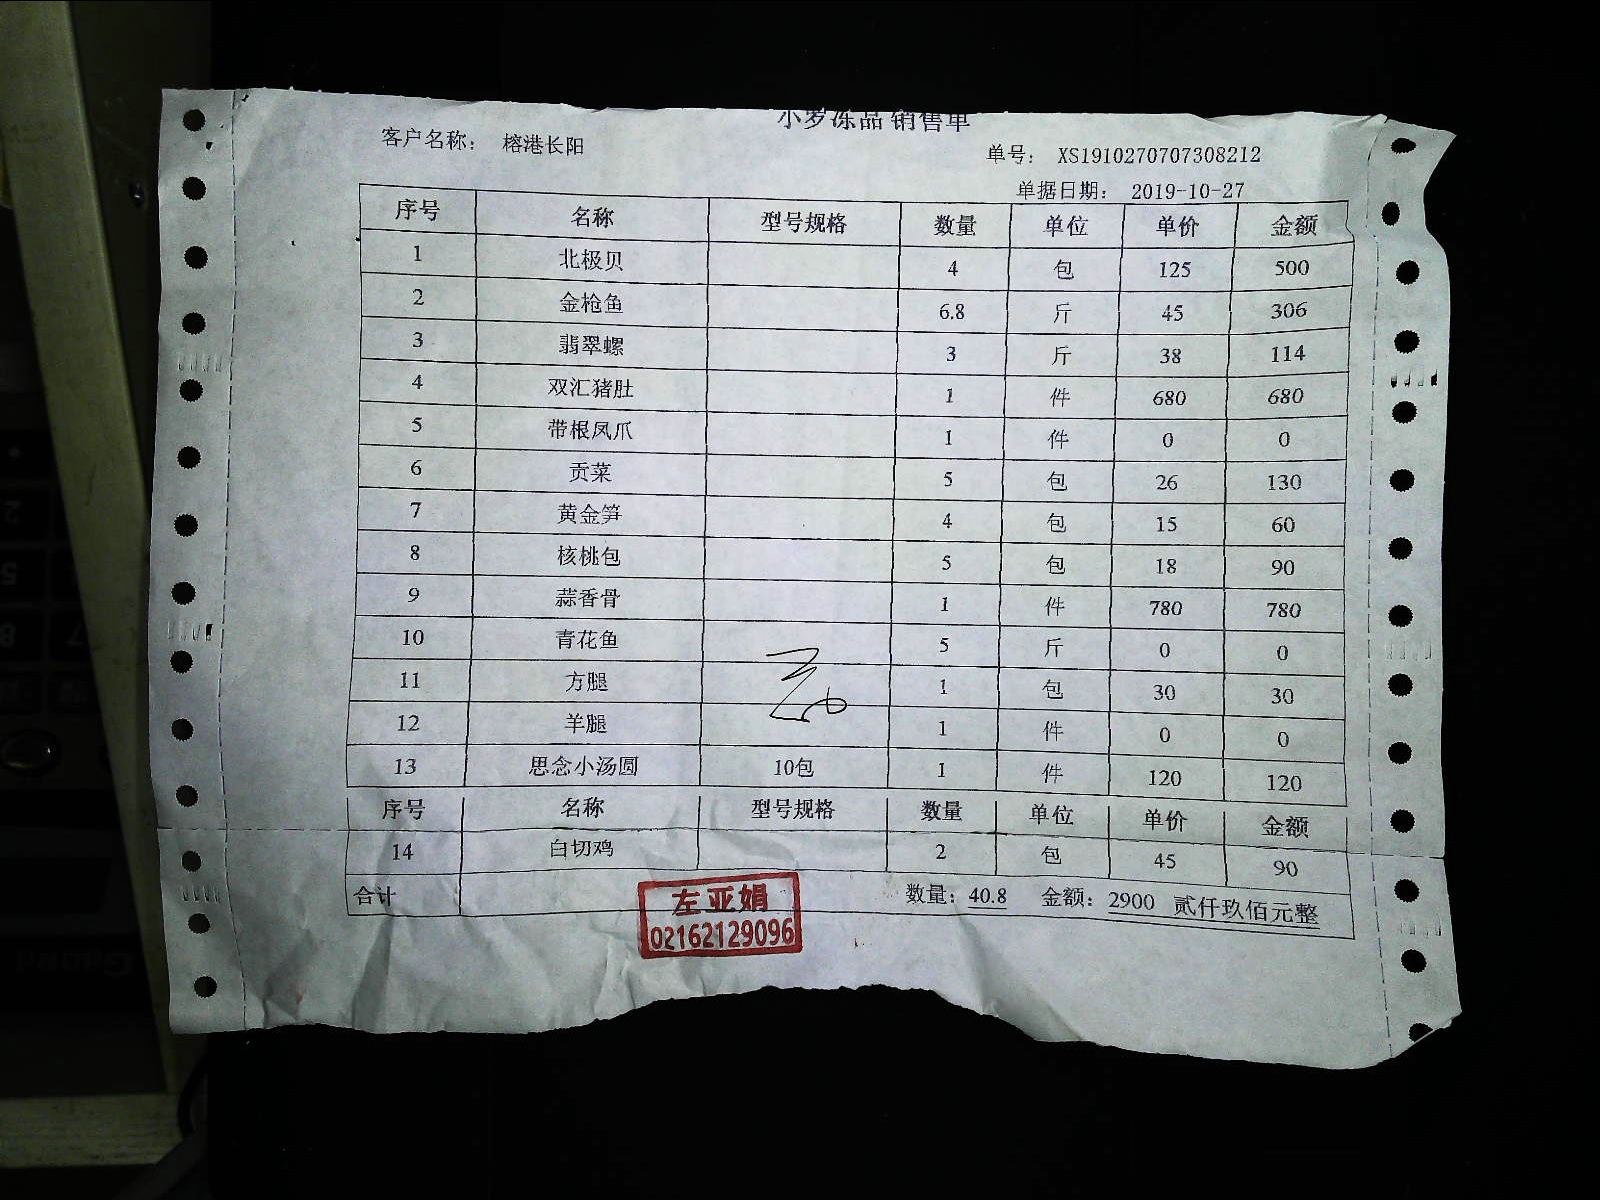 小罗冻品 销售单
客户名称： 榕港长阳
单号： XS1910270707308212
单据日期： 2019-10-27
序号 名称 型号规格 数量 单位 单价 金额
1 北极贝 4 包 125 500
2 金枪鱼 6.8 斤 45 306
3 翡翠螺 3 斤 38 114
4 双汇猪肚 1 件 680 680
5 带根凤爪 1 件 0 0
6 贡菜 5 包 26 130
7 黄金笋 4 包 15 60
8 核桃包 5 包 18 90
9 蒜香骨 1 件 780 780
10 青花鱼 5 斤 0 0
11 方腿 1 包 30 30
12 羊腿 1 件 0 0
13 思念小汤圆 10包 1 件 120 120
序号 名称 型号规格 数量 单位 单价 金额
14 白切鸡 2 包 45 90
合计 数量：40.8 金额：2900 贰仟玖佰元整
左亚娟
02162129096